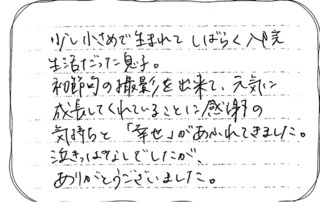 少し小さめで生まれてしばらく入院
生活だった息子。
初節句の撮影を出来て、元気に
成長してくれていることに感謝の
気持ちと「幸せ」があふれてきました。
泣きっぱなしでしたが、
ありがとうございました。